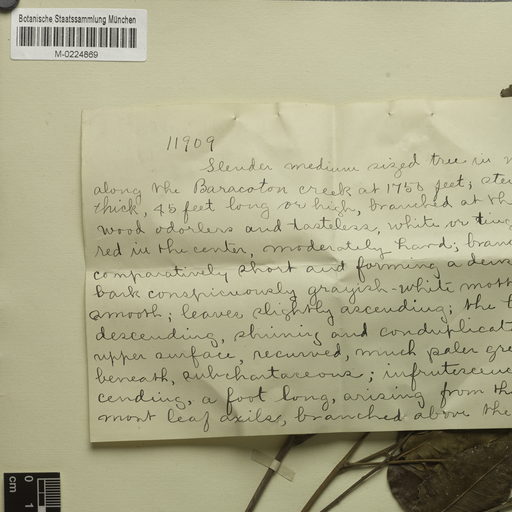 Botanische Staatssammlung München
M-0224869
11909
Slender medium sized tree in
along the Baracoton creek at 1750 feet;
thick, 45 feet long or high, branched at
wood odorless and tasteless, white or
red in the center, moderately hard;
comparatively short and forming a
bark conspicuously grayish-white
smooth; leaves slightly ascending; the
descending, shining and
upper surface, recurved, much paler
beneath, subchartaceous;
cending, a foot long, arising from
most leaf axils, branched above the
0 1
cm